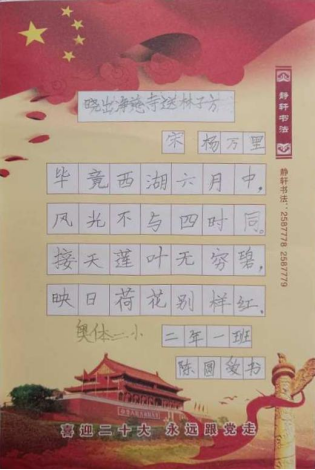 晓出净慈寺送林子方
宋 杨万里
毕竟西湖六月中,
风光不与四时同。
接天莲叶无穷碧,
映日荷花别样红。
奥体二小 二年一班
陈圆 书
喜迎二十大 永远跟党走
静轩书法
静轩书法: 2587778 2587779